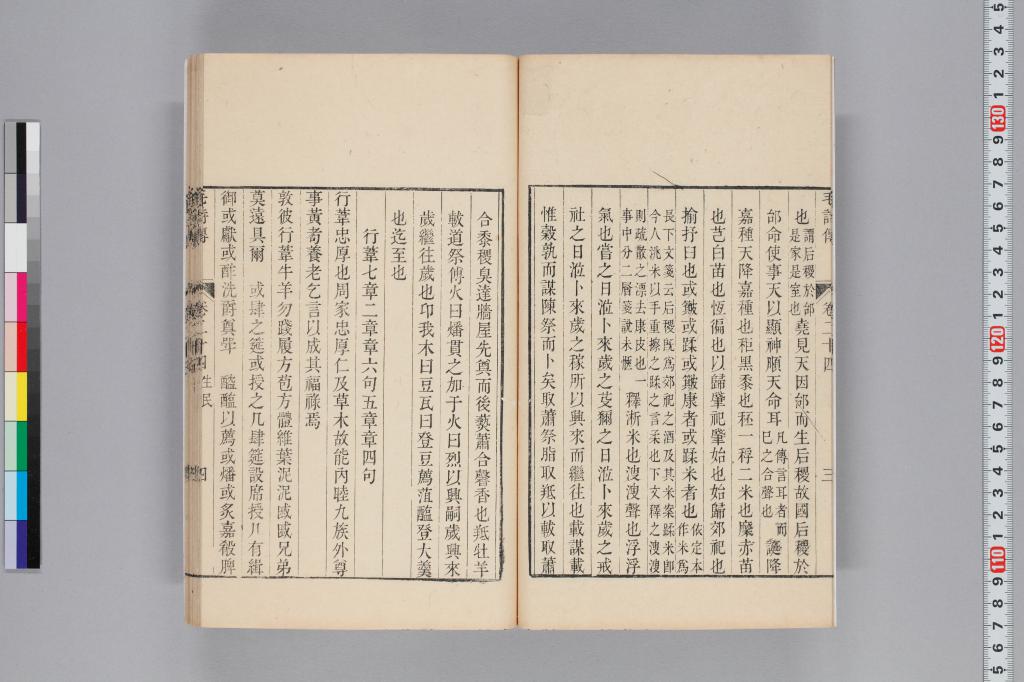 毛詩傳 卷二十四 三
也謂后稷於邰是家是室也堯見天因邰而生后稷故國后稷於
邰命使事天以顯神順天命耳凡傳言耳者而已之合聲也誕降
嘉種天降嘉種也秬黑黍也秠一稃二米也穈赤苗
也芑白苗也恆徧也以歸肇祀肇始也始歸郊祀也
揄抒臼也或簸或蹂或簸康者或蹂米者也依定本作米爲
長下文箋云后稷旣爲郊祀之酒及其米案蹂米卽
今人洮米以手重擦之蹂之言柔也下文釋之溲溲
則疏散之漂去康皮也一
事中分二層箋說未愜釋淅米也溲溲聲也浮浮
氣也嘗之日涖卜來歲之芟獮之日涖卜來歲之戒
社之日涖卜來歲之稼所以興來而繼往也載謀載
惟穀孰而謀陳祭而卜矣取蕭祭脂取羝以軷取蕭
合黍稷臭達牆屋先奠而後爇蕭合馨香也羝牡羊
軷道祭傅火曰燔貫之加于火曰烈以興嗣歲興來
歲繼往歲也卬我木曰豆瓦曰登豆薦菹醢登大羹
也迄至也
行葦七章二章章六句五章章四句
行葦忠厚也周家忠厚仁及草木故能內睦九族外尊
事黃耇養老乞言以成其福祿焉
敦彼行葦牛羊勿踐履方苞方體維葉泥泥戚戚兄弟
莫遠具爾 或肆之筵或授之几肆筵設席授几有緝
御或獻或酢洗爵奠斝 醓醢以薦或燔或炙嘉殽脾
生民 四